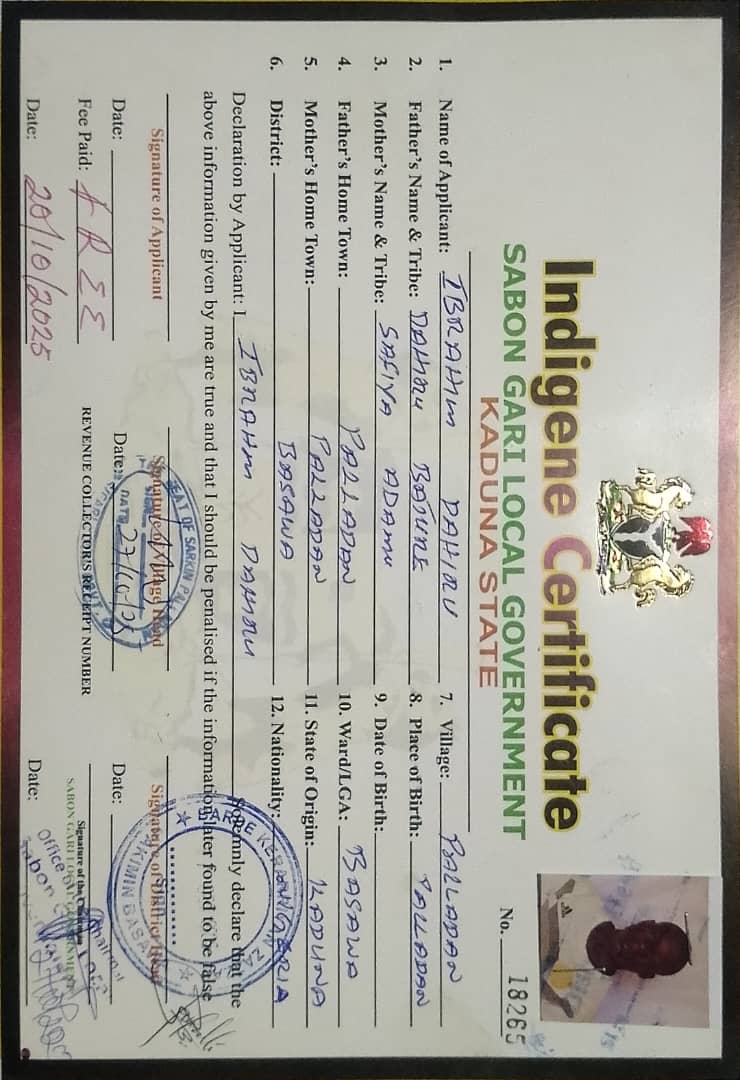 Indigene Certificate
SABON GARI LOCAL GOVERNMENT
KADUNA STATE
No. 18265
1. Name of Applicant: IBRAHIM DAHIRU
2. Father's Name & Tribe: DAHIRU BATURE
3. Mother's Name & Tribe: SAFIYA ADAMU
4. Father's Home Town: PALLADAN
5. Mother's Home Town: PALLADAN
6. District: BASAWA
7. Village: PALLADAN
8. Place of Birth: PALLADAN
9. Date of Birth:
10. Ward/LGA: BASAWA
11. State of Origin: KADUNA
12. Nationality: NIGERIA
Declaration by Applicant: I IBRAHIM DAHIRU Solemnly declare that the
above information given by me are true and that I should be penalised if the information later found to be false
Signature of Applicant
Signature of Village Head
Signature of District Head
Date:
Date: 27/10/25
Date:
SEAT OF SARKIN
DATE
HAKIMIN BASAWA
Fee Paid: FREE
REVENUE COLLECTOR'S RECEIPT NUMBER
Signature of the Chairman
SABON GARI LOCAL GOVERNMENT
Date: 20/10/2025
Date:
Office of
Chairman
Sabon